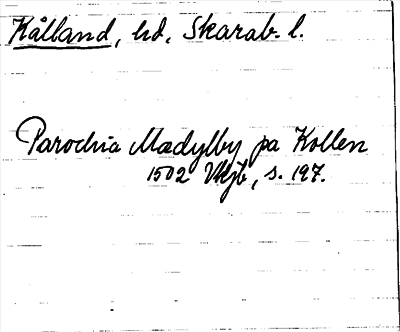 Kålland, hd, Skarab. l.
Parochia Mædylby pa Kollen
1502 Vkjb, s. 197.